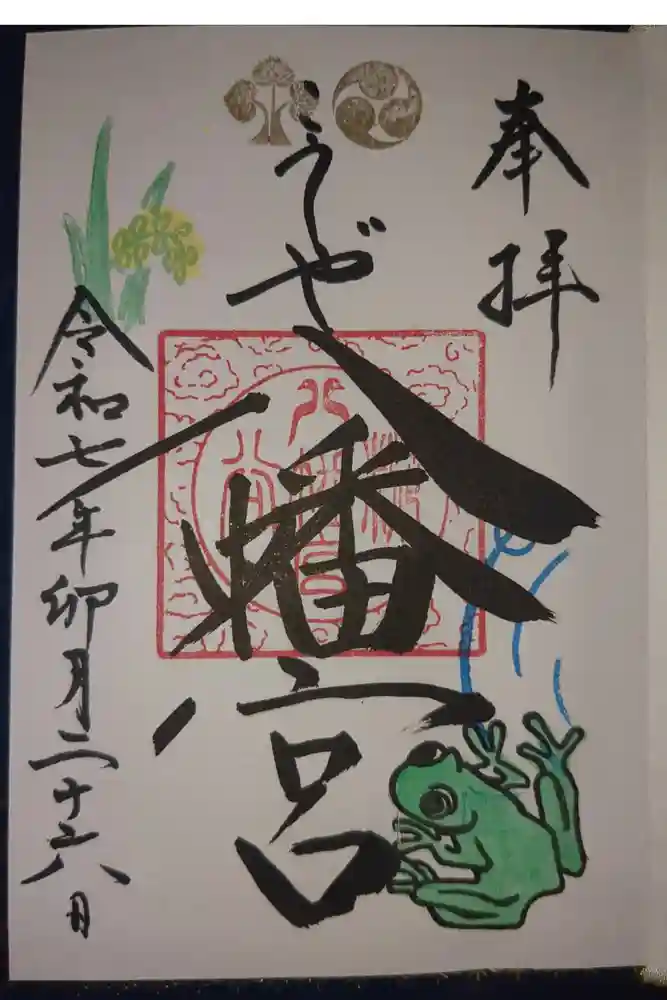 奉拝
八幡宮
令和七年卯月二十六日